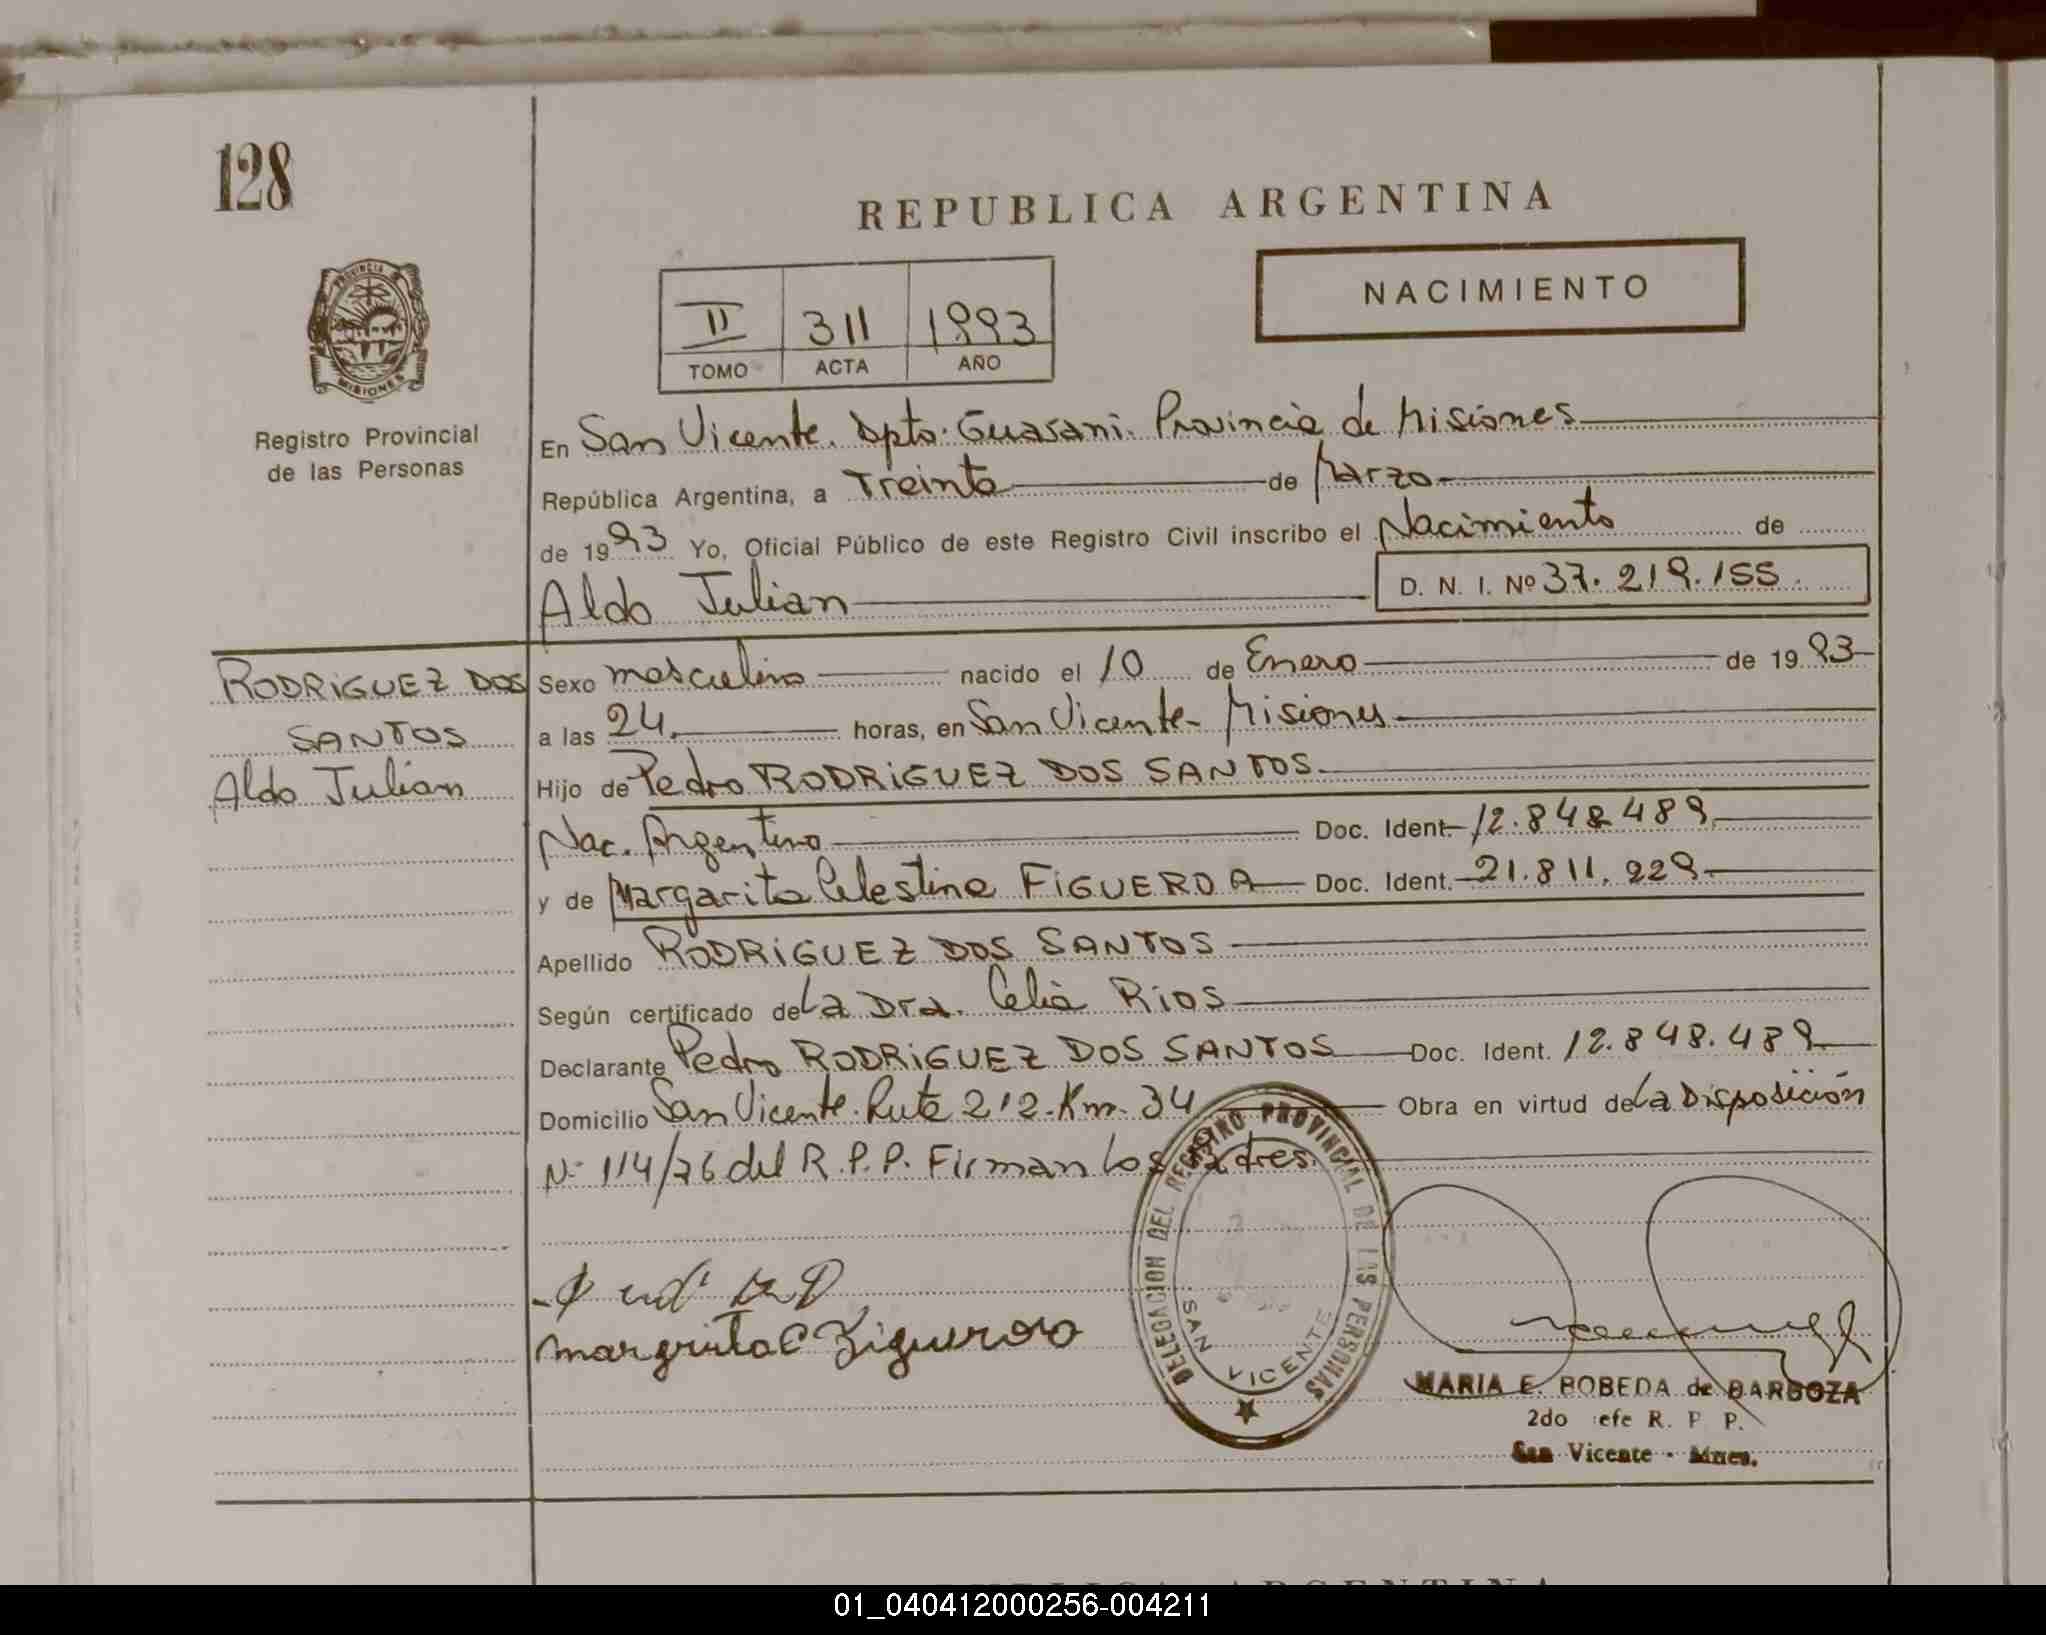 128
REPUBLICA ARGENTINA
NACIMIENTO
II 311 1993
TOMO ACTA AÑO
PROVINCIA
MISIONES
Registro Provincial
de las Personas
En San Vicente. Dpto. Guarani. Provincia de Misiones
República Argentina, a Treinta de Marzo
de 1993 Yo, Oficial Público de este Registro Civil inscribo el Nacimiento de
Aldo Julian D. N. I. Nº 37.219.155
RODRIGUEZ DOS
SANTOS
Aldo Julian
Sexo masculino nacido el 10 de Enero de 1993
a las 24 horas, en San Vicente - Misiones
Hijo de Pedro RODRIGUEZ DOS SANTOS
Nac. Argentino Doc. Ident. 12.848.489
y de Margarita Celestina FIGUEROA Doc. Ident. 21.811.229
Apellido RODRIGUEZ DOS SANTOS
Según certificado de La Dra. Celia Rios
Declarante Pedro RODRIGUEZ DOS SANTOS Doc. Ident. 12.848.489
Domicilio San Vicente. Ruta 212. Km. 34 Obra en virtud de La Disposición
Nº 114/76 del R.P.P. Firman Los Padres.
margrita C Figueroa
DELEGACION DEL REGISTRO PROVINCIAL DE LAS PERSONAS
SAN VICENTE
MARIA E. BOBEDA de BARBOZA
2do efe R. P P.
San Vicente - Mnes.
ARGENTINA
01_040412000256-004211